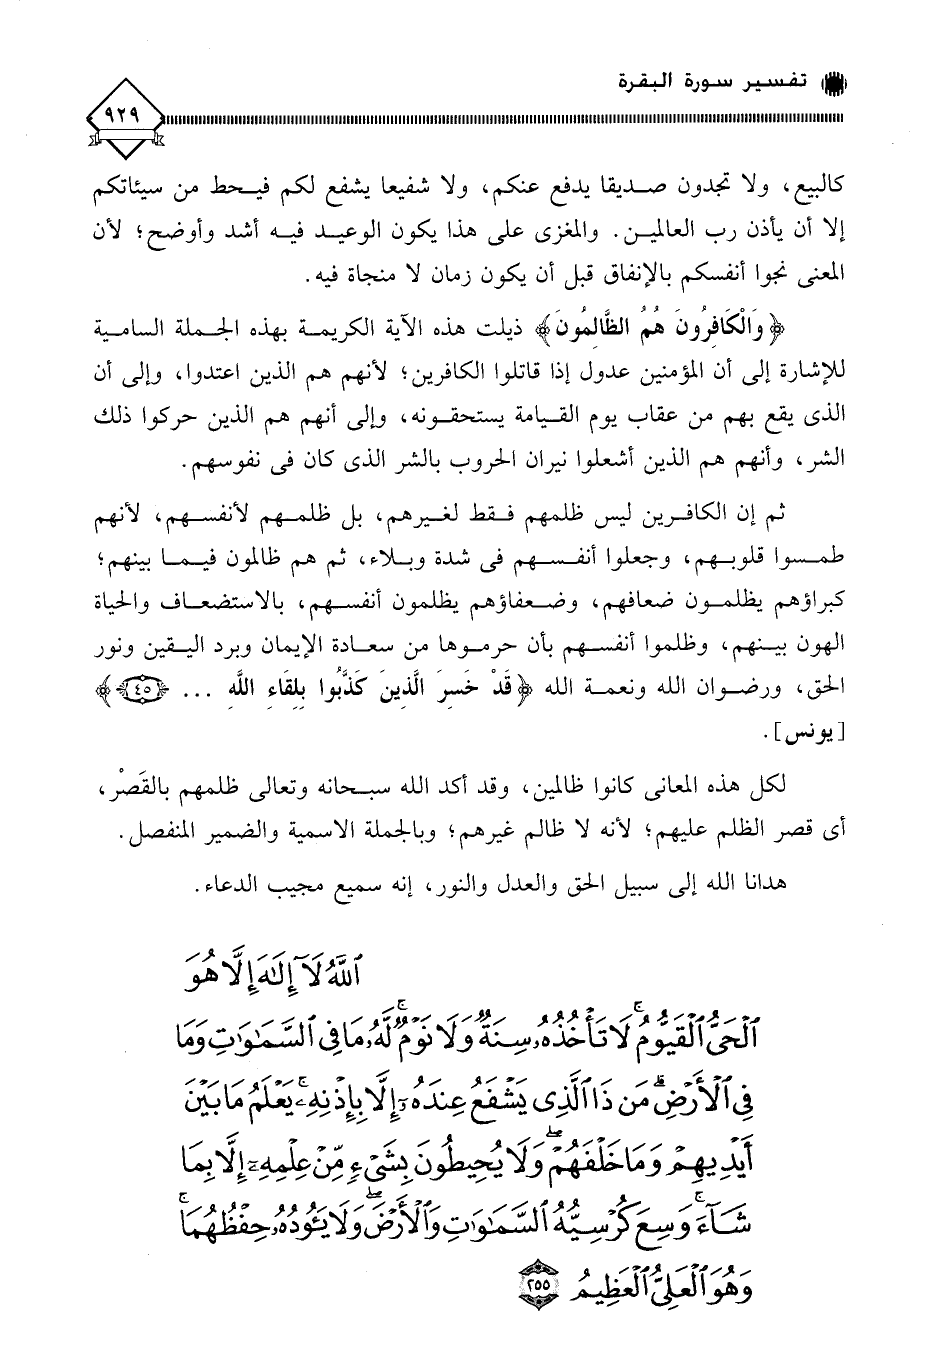 تفسير سورة البقرة
٩٢٩
كالبيع، ولا تجدون صديقا يدفع عنكم، ولا شفيعا يشفع لكم فيحط من سيئاتكم
إلا أن يأذن رب العالمين. والمغزى على هذا يكون الوعيد فيه أشد وأوضح؛ لأن
المعنى نجوا أنفسكم بالإنفاق قبل أن يكون زمان لا منجاة فيه.
﴿وَالْكَافِرُونَ هُمُ الظَّالِمُونَ﴾ ذيلت هذه الآية الكريمة بهذه الجملة السامية
للإشارة إلى أن المؤمنين عدول إذا قاتلوا الكافرين؛ لأنهم هم الذين اعتدوا، وإلى أن
الذى يقع بهم من عقاب يوم القيامة يستحقونه، وإلى أنهم هم الذين حركوا ذلك
الشر، وأنهم هم الذين أشعلوا نيران الحروب بالشر الذى كان فى نفوسهم.
ثم إن الكافرين ليس ظلمهم فقط لغيرهم، بل ظلمهم لأنفسهم، لأنهم
طمسوا قلوبهم، وجعلوا أنفسهم فى شدة وبلاء، ثم هم ظالمون فيما بينهم؛
كبراؤهم يظلمون ضعافهم، وضعفاؤهم يظلمون أنفسهم، بالاستضعاف والحياة
الهون بينهم، وظلموا أنفسهم بأن حرموها من سعادة الإيمان وبرد اليقين ونور
الحق، ورضوان الله ونعمة الله ﴿قَدْ خَسِرَ الَّذِينَ كَذَّبُوا بِلِقَاءِ اللَّهِ ... ﴿٤٥﴾﴾
[يونس].
لكل هذه المعانى كانوا ظالمين، وقد أكد الله سبحانه وتعالى ظلمهم بالقَصْر،
أى قصر الظلم عليهم؛ لأنه لا ظالم غيرهم؛ وبالجملة الاسمية والضمير المنفصل.
هدانا الله إلى سبيل الحق والعدل والنور، إنه سميع مجيب الدعاء.
ٱللَّهُ لَآ إِلَٰهَ إِلَّا هُوَ
ٱلْحَىُّ ٱلْقَيُّومُ ۚ لَا تَأْخُذُهُۥ سِنَةٌ وَلَا نَوْمٌ ۚ لَّهُۥ مَا فِى ٱلسَّمَٰوَٰتِ وَمَا
فِى ٱلْأَرْضِ ۗ مَن ذَا ٱلَّذِى يَشْفَعُ عِندَهُۥٓ إِلَّا بِإِذْنِهِۦ ۚ يَعْلَمُ مَا بَيْنَ
أَيْدِيهِمْ وَمَا خَلْفَهُمْ ۖ وَلَا يُحِيطُونَ بِشَىْءٍ مِّنْ عِلْمِهِۦٓ إِلَّا بِمَا
شَآءَ ۚ وَسِعَ كُرْسِيُّهُ ٱلسَّمَٰوَٰتِ وَٱلْأَرْضَ ۖ وَلَا يَـُٔودُهُۥ حِفْظُهُمَا ۚ
وَهُوَ ٱلْعَلِىُّ ٱلْعَظِيمُ ٢٥٥